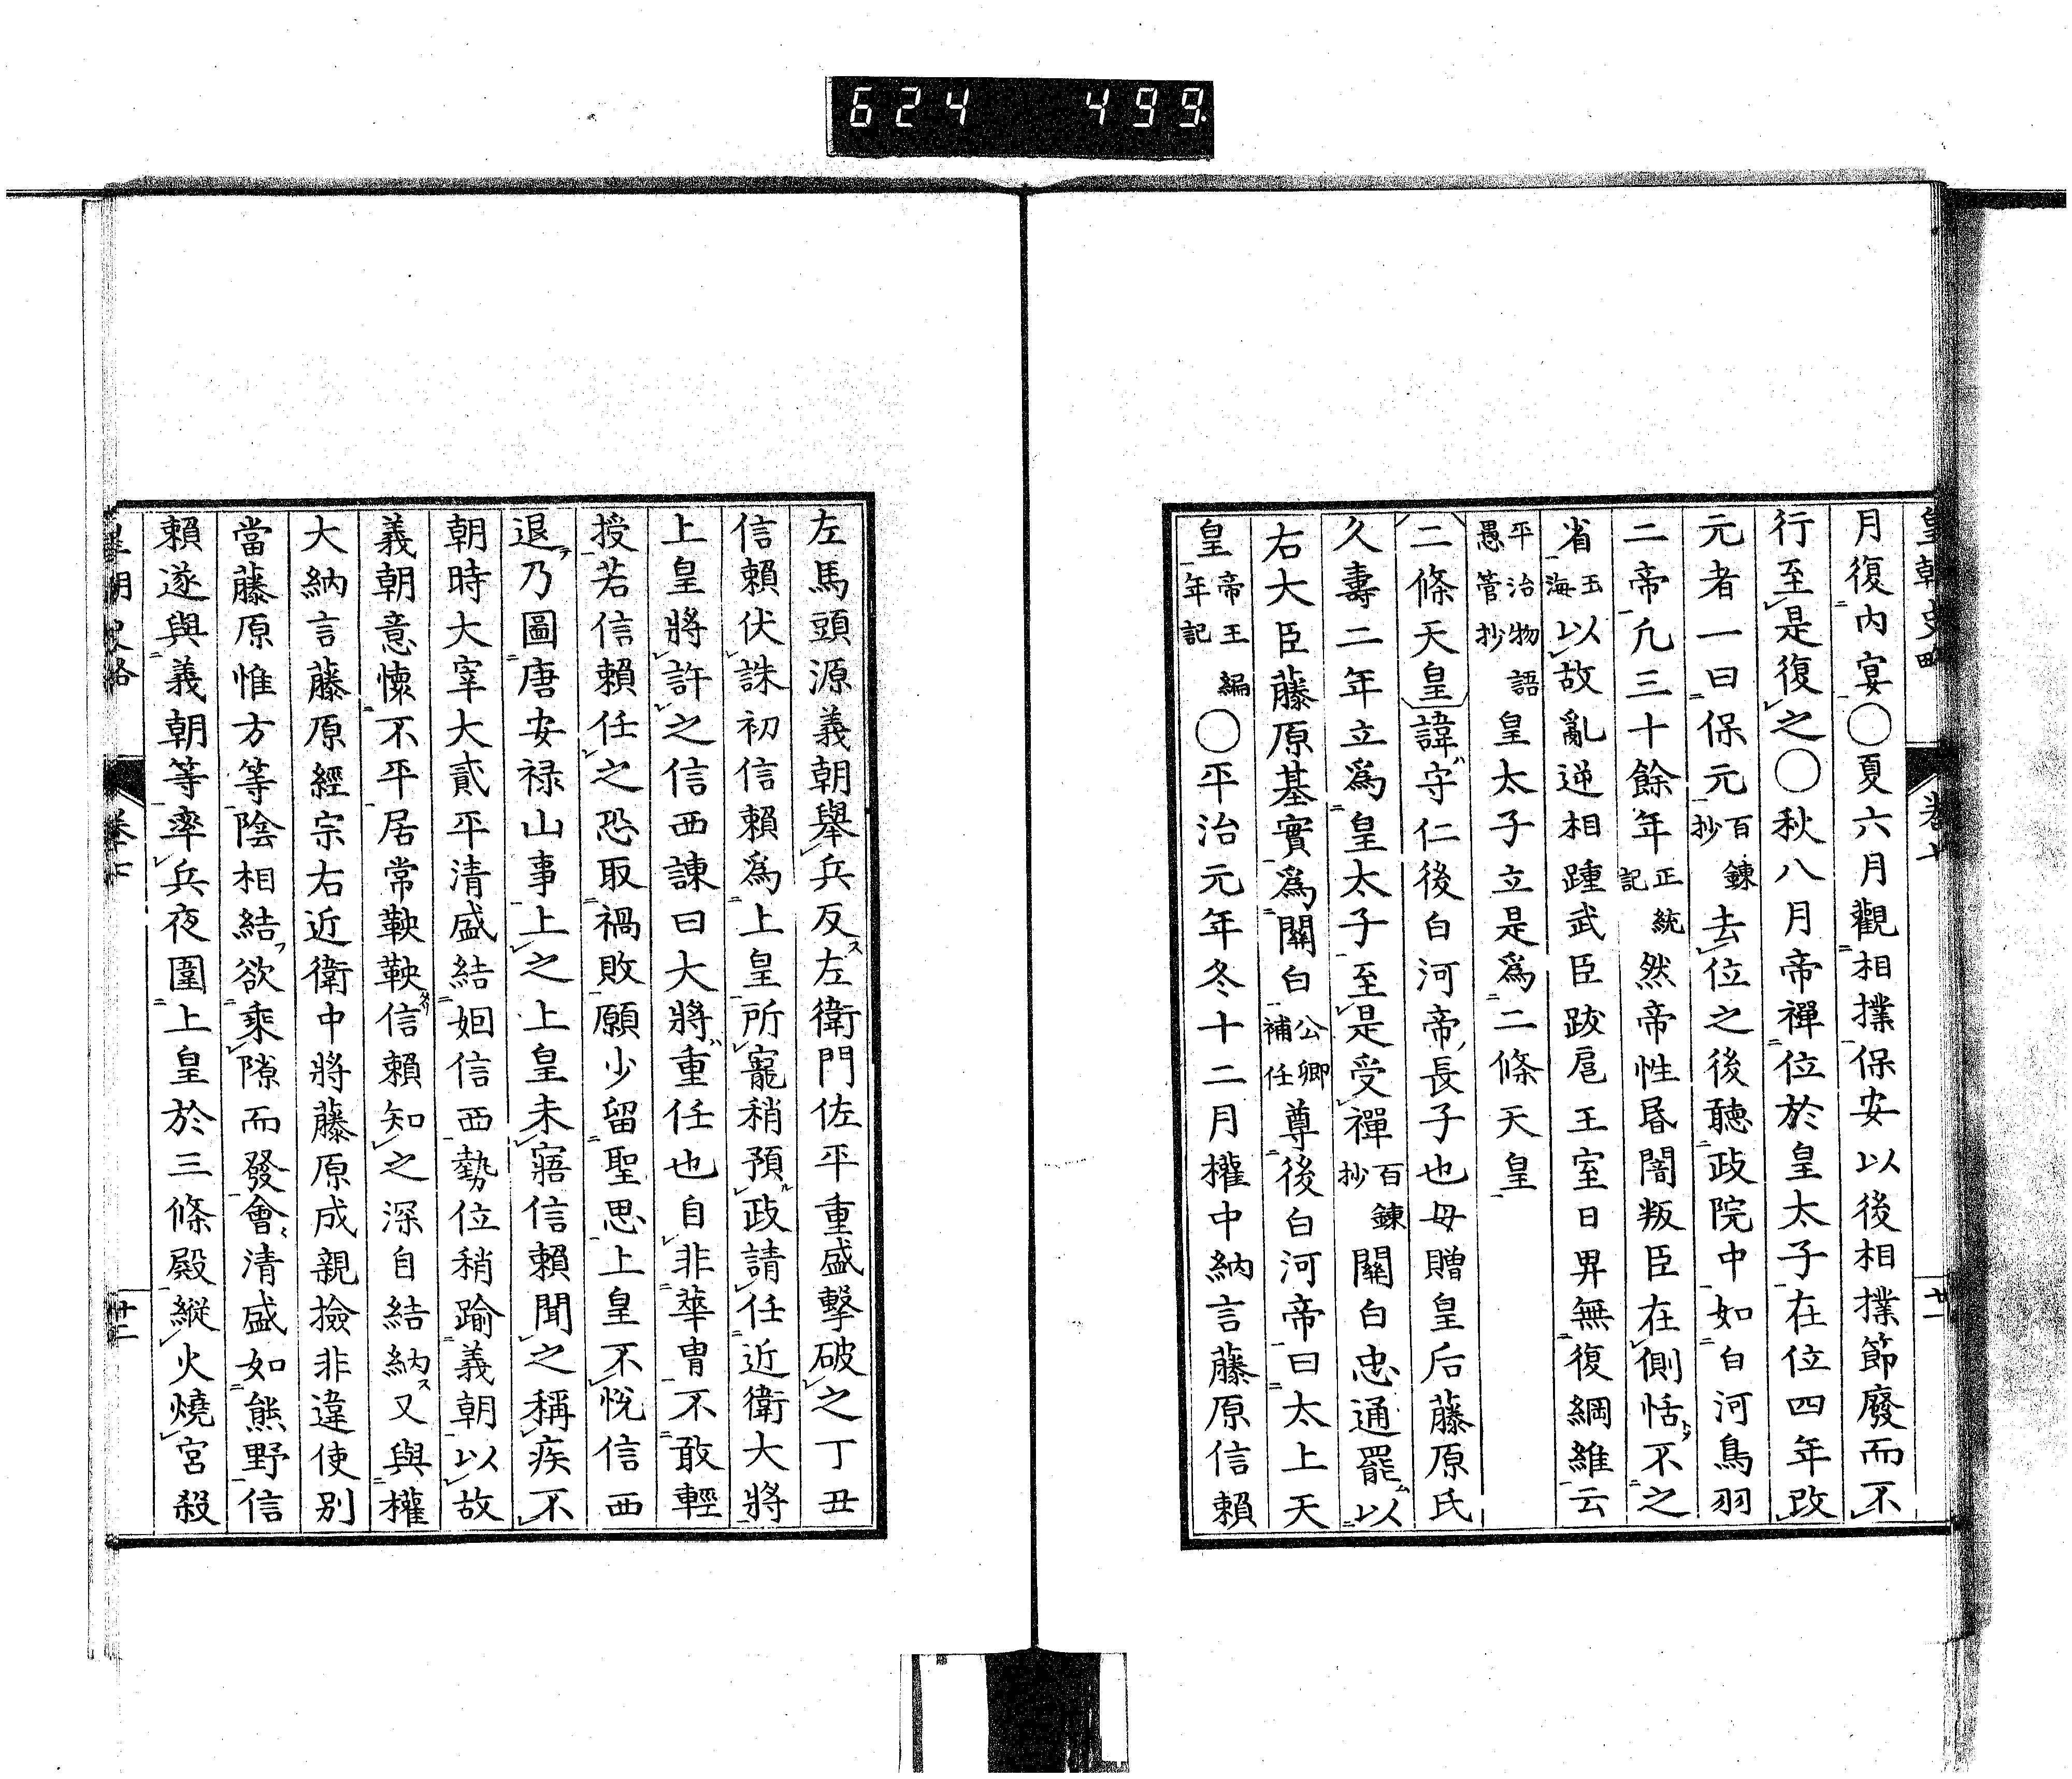 624 499
皇朝史略 卷十 廿一
月復内宴〇夏六月觀相撲保安以後相撲節廢而不
行至是復之〇秋八月帝禪位於皇太子在位四年改
元者一曰保元百鍊抄去位之後聽政院中如白河鳥羽
二帝凢三十餘年正統記然帝性昬闇叛臣在側恬不之
省玉海以故亂逆相踵武臣跋扈王室日昇無復綱維云
平治物語愚管抄皇太子立是爲二條天皇
二條天皇諱守仁後白河帝長子也母贈皇后藤原氏
久壽二年立爲皇太子至是受禪百鍊抄關白忠通罷以
右大臣藤原基實爲關白公卿補任尊後白河帝曰太上天
皇帝王編年記〇平治元年冬十二月權中納言藤原信賴
左馬頭源義朝舉兵反左衞門佐平重盛擊破之丁丑
信賴伏誅初信賴爲上皇所寵稍預政請任近衞大將
上皇將許之信西諫曰大將重任也自非華冑不敢輕
授若信賴任之恐取禍敗願少留聖思上皇不悅信西
退乃圖唐安禄山事上之上皇未寤信賴聞之稱疾不
朝時大宰大貳平清盛結姻信西勢位稍踰義朝以故
義朝意懷不平居常鞅鞅信賴知之深自結納又與權
大納言藤原經宗右近衞中將藤原成親撿非違使别
當藤原惟方等陰相結欲乘隙而發會清盛如熊野信
賴遂與義朝等率兵夜圍上皇於三條殿縱火燒宮殺